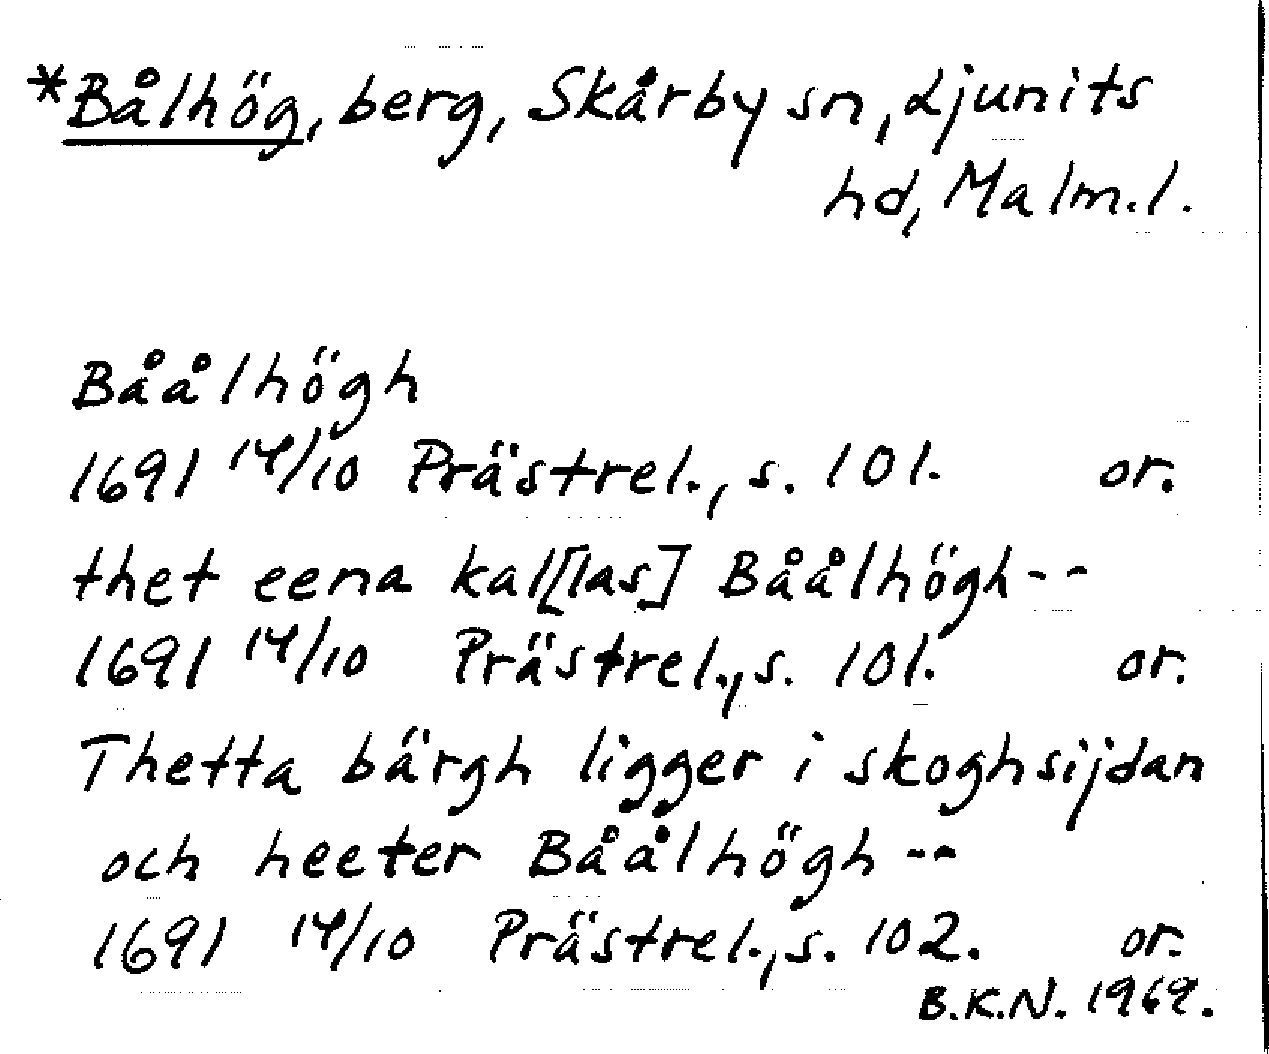 *Bålhög, berg, Skårby sn, Ljunits
hd, Malm.l.
Båålhögh
1691 14/10 Prästrel., s. 101. or.
thet eena kal[las] Båålhögh--
1691 14/10 Prästrel., s. 101. or.
Thetta bärgh ligger i skoghsijdan
och heeter Båålhögh--
1691 14/10 Prästrel., s. 102. or.
B.K.N. 1969.